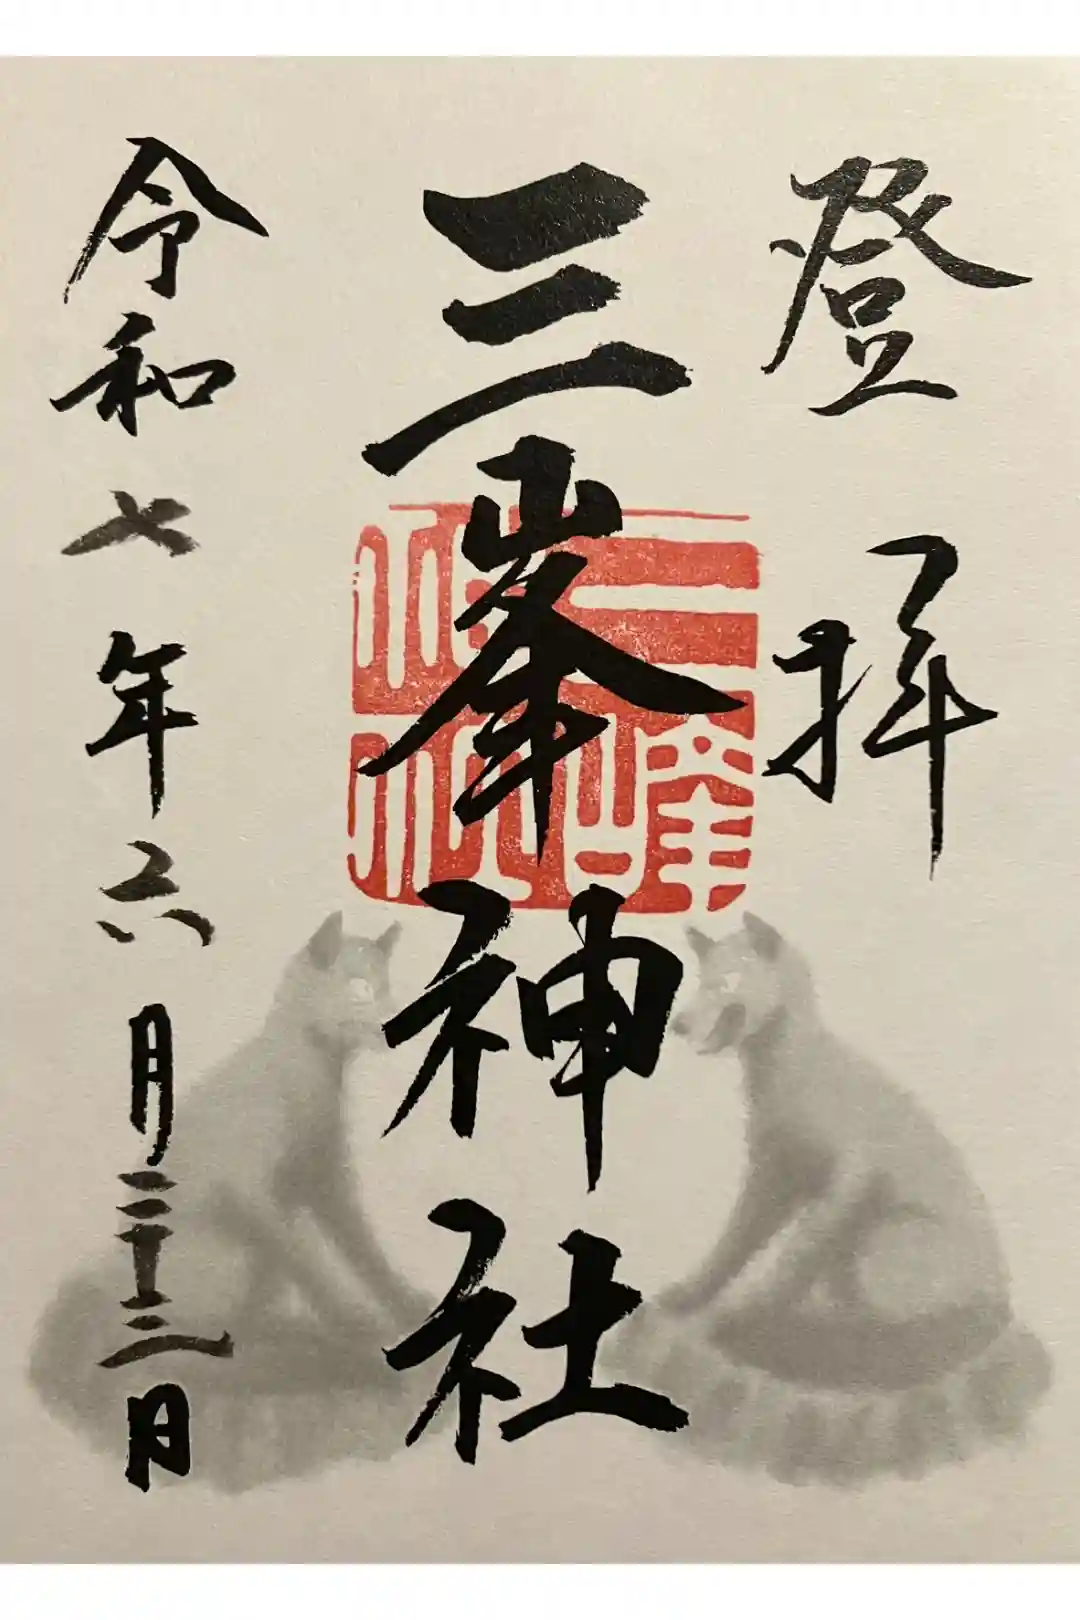 登拝
三峯神社
令和七年六月二十二日